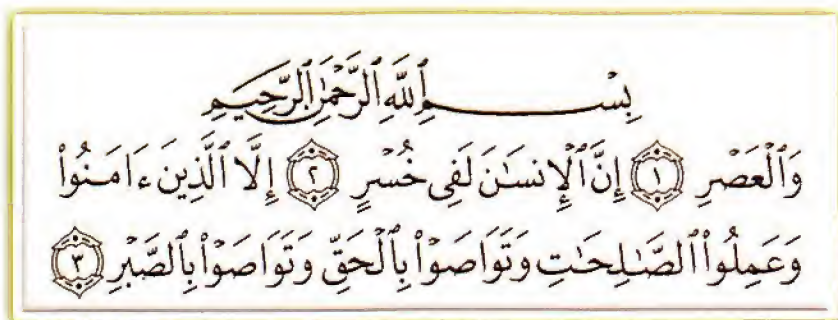 بِسْمِ ٱللَّهِ ٱلرَّحْمَٰنِ ٱلرَّحِيمِ
وَٱلْعَصْرِ ١ إِنَّ ٱلْإِنسَٰنَ لَفِى خُسْرٍ ٢ إِلَّا ٱلَّذِينَ ءَامَنُوا۟
وَعَمِلُوا۟ ٱلصَّٰلِحَٰتِ وَتَوَاصَوْا۟ بِٱلْحَقِّ وَتَوَاصَوْا۟ بِٱلصَّبْرِ ٣